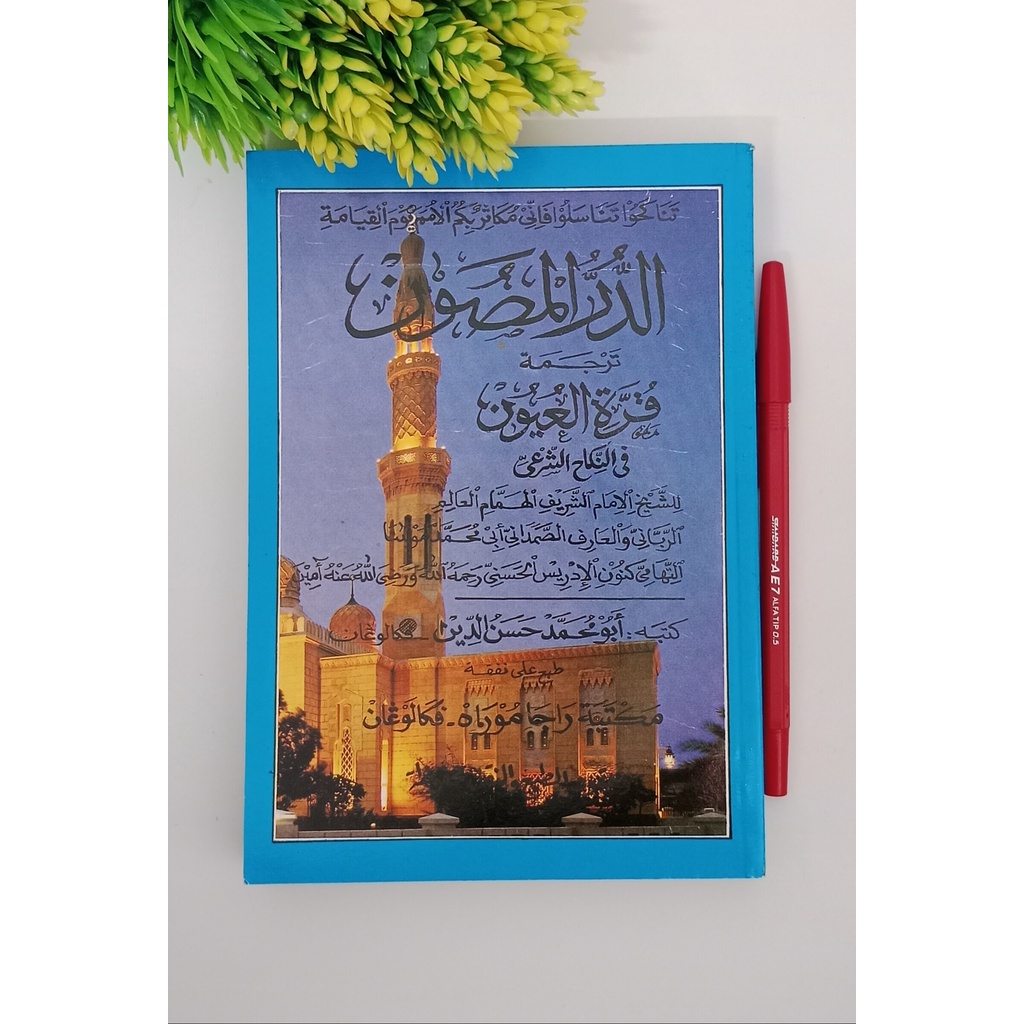 تَنَاكَحُوْا تَنَاسَلُوْا فَاِنِّىْ مُكَاثِرٌ بِكُمُ الْاُمَمَ يَوْمَ الْقِيَامَةِ
الدُّرُّ الْمَصُوْن
تَرْجَمَة
قُرَّةِ الْعُيُوْن
فى النكاح الشّرعىّ
لِلشَّيْخِ الْاِمَامِ الشَّرِيْفِ الْهُمَّامِ الْعَالِمِ
الرَّبَّانِىّ وَالْعَارِفِ الصَّمَدَانِىّ أَبِىْ مُحَمَّدْ مَوْلَانَا
التِّهَامِىّ كَنُوْنِ الْإِدْرِيْسِ الْحَسَنِىّ رَحِمَهُ اللّٰهُ وَرَضِىَ اللّٰهُ عَنْهُ أٓمِيْنَ
كتبه : أَبُوْ مُحَمَّدْ حَسَنُ الدِّيْن - فكالوڠان
طبع على نفقة
مَكْتَبَة رَاجَا مُوْرَاهْ - فكَالَوْڠَانْ
STANDARD AE7 ALFATIP 0.5